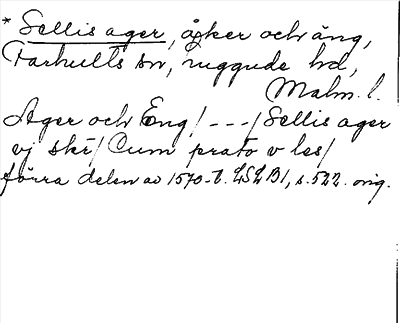 * Sellis ager, åker och äng,
Farhults sn, Luggude hd,
Malm. l.
Ager och Eng / --- / Sellis ager
vj skr / Cum prato v les /
förra delen av 1570-t. LSLB1, s. 522. orig.